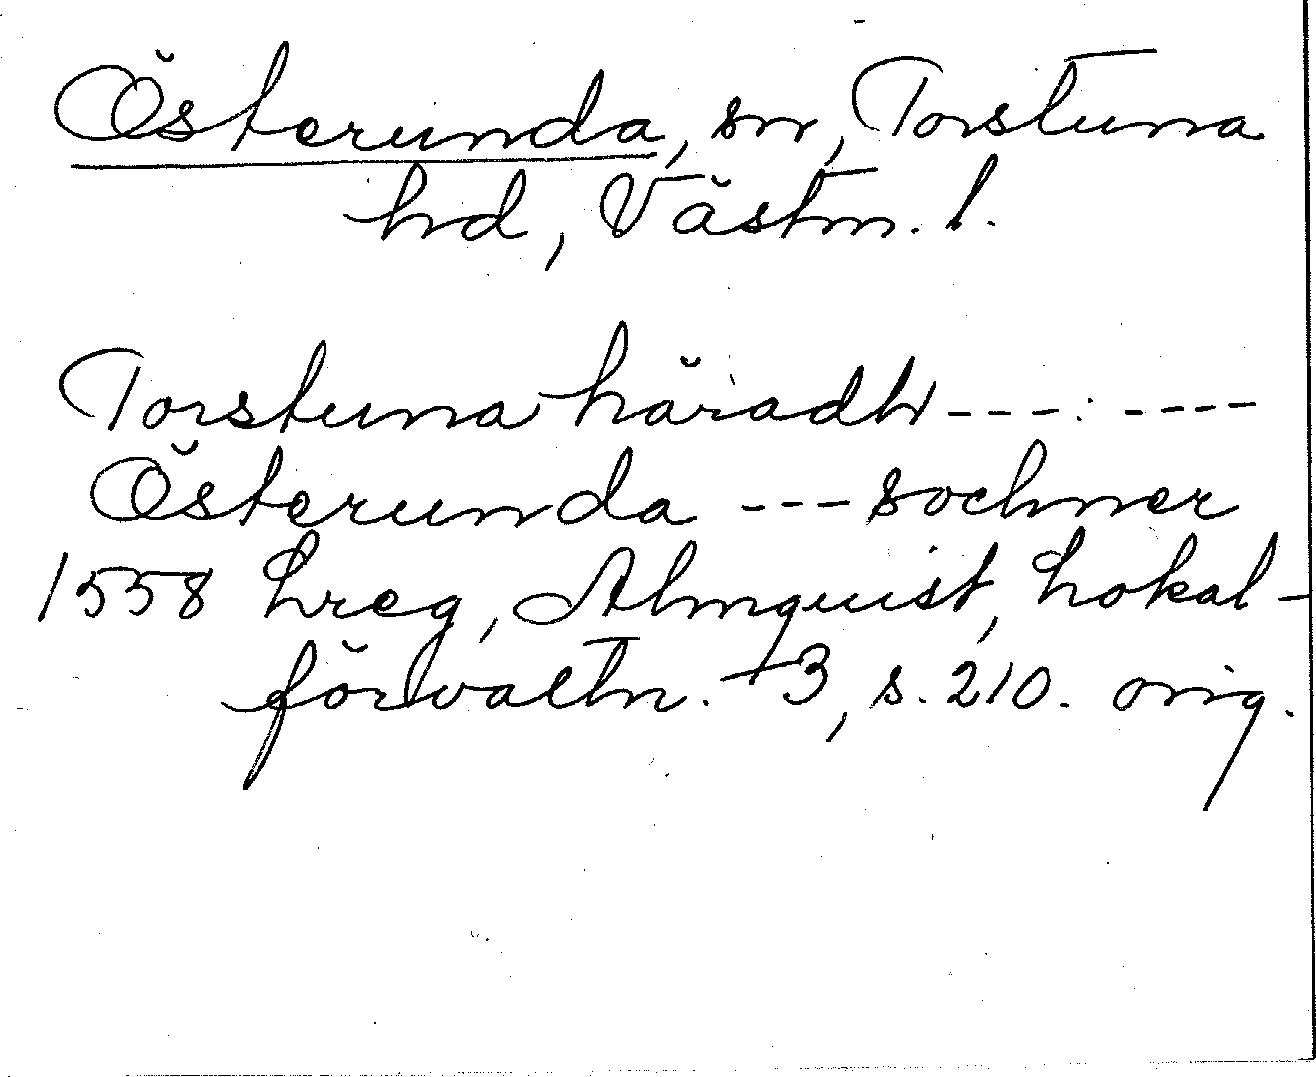 Österunda, sn, Torstuna
hd, Västm. l.
Torstuna häradh ---.----
Österunda --- sochner
1558 Lreg, Almquist, Lokal-
förvaltn. +3, s. 210. orig.